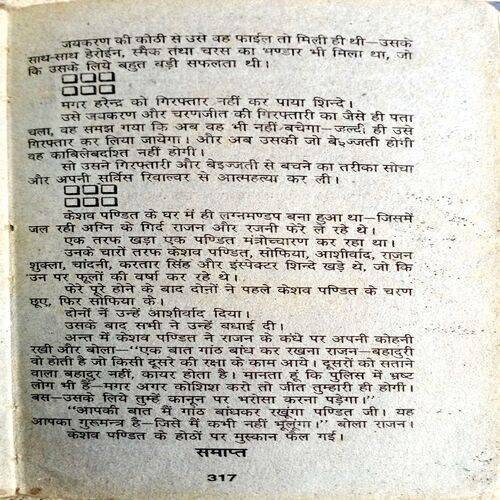 जयकरण की कोठी से उसे वह फाईल तो मिली ही थी—उसके
साथ-साथ हेरोईन, स्मैक तथा चरस का भण्डार भी मिला था, जो
कि उसके लिये बहुत बड़ी सफलता थी।
मगर हरेन्द्र को गिरफ्तार नहीं कर पाया शिन्दे।
उसे जयकरण और चरणजीत की गिरफ्तारी का जैसे ही पता
चला, वह समझ गया कि अब वह भी नहीं बचेगा—जल्दी ही उसे
गिरफ्तार कर लिया जायेगा। और अब उसकी जो बेइज्जती होगी
वह काबिलेबर्दाश्त नहीं होगी।
सो उसने गिरफ्तारी और बेइज्जती से बचने का तरीका सोचा
और अपनी सर्विस रिवाल्वर से आत्महत्या कर ली।
केशव पण्डित के घर में ही लग्नमण्डप बना हुआ था—जिसमें
जल रही अग्नि के गिर्द राजन और रजनी फेरे ले रहे थे।
एक तरफ खड़ा एक पण्डित मंत्रोच्चारण कर रहा था।
उनके चारों तरफ केशव पण्डित, सोफिया, आशीर्वाद, राजन
शुक्ला, चांदनी, करतार सिंह और इंस्पेक्टर शिन्दे खड़े थे, जो कि
उन पर फूलों की वर्षा कर रहे थे।
फेरे पूरे होने के बाद दोनों ने पहले केशव पण्डित के चरण
छूए, फिर सोफिया के।
दोनों नें उन्हें आशीर्वाद दिया।
उसके बाद सभी ने उन्हें बधाई दी।
अन्त में केशव पण्डित ने राजन के कंधे पर अपनी कोहनी
रखी और बोला—"एक बात गांठ बांध कर रखना राजन—बहादुरी
वो होती है जो किसी दूसरे की रक्षा के काम आये। दूसरों को सताने
वाला बहादुर नहीं, कायर होता है। मानता हूं कि पुलिस में भ्रष्ट
लोग भी हैं—मगर अगर कोशिश करो तो जीत तुम्हारी ही होगी।
बस—उसके लिये तुम्हें कानून पर भरोसा करना पड़ेगा।"
"आपकी बात मैं गांठ बांधकर रखूंगा पण्डित जी। यह
आपका गुरूमन्त्र है—जिसे मैं कभी नहीं भूलूंगा।" बोला राजन।
केशव पण्डित के होठों पर मुस्कान फैल गई।
समाप्त
317